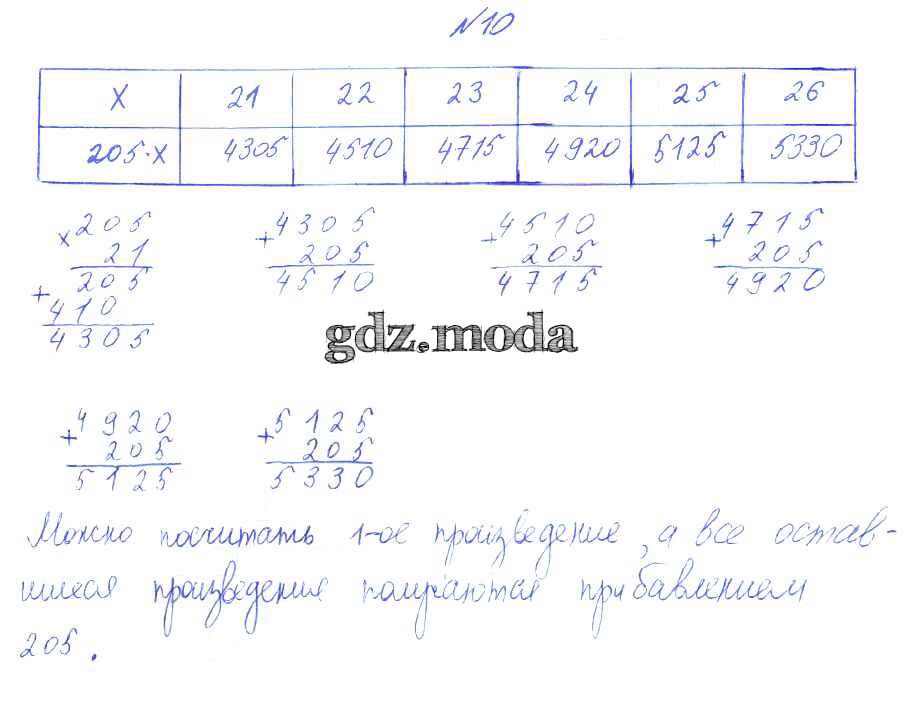 №10
x 21 22 23 24 25 26
205·x 4305 4510 4715 4920 5125 5330
× 205
21
205
+ 410
4305
+ 4305
205
4510
+ 4510
205
4715
+ 4715
205
4920
gdz.moda
+ 4920
205
5125
+ 5125
205
5330
Можно посчитать 1-ое произведение, а все остав-
шиеся произведения получаются прибавлением
205.